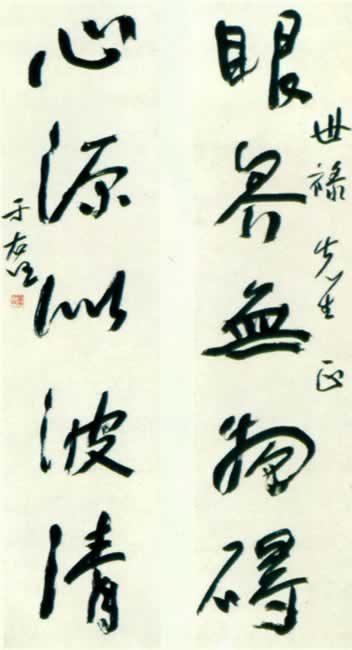 世祿先生正
眼界無物礙
心源似波清
于右任